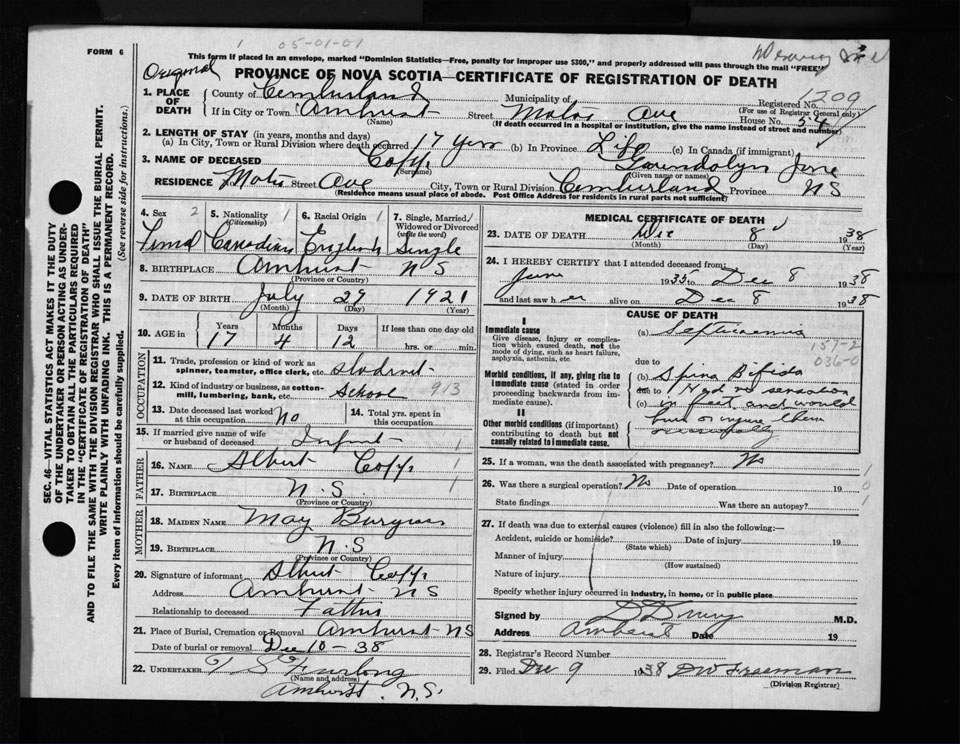 1 05-01-01
FORM 6
This form if placed in an envelope, marked "Dominion Statistics—Free, penalty for improper use $300," and properly addressed will pass through the mail "FREE"
Original
PROVINCE OF NOVA SCOTIA—CERTIFICATE OF REGISTRATION OF DEATH
1. PLACE OF DEATH
County of Cumberland Municipality of Registered No. 1200
(For use of Registrar General only)
If in City or Town Amherst Street Motor Ave House No. 54
(Name) (If death occurred in a hospital or institution, give the name instead of street and number)
2. LENGTH OF STAY (in years, months and days)
(a) In City, Town or Rural Division where death occurred 17 years (b) In Province Life (c) In Canada (if immigrant)
3. NAME OF DECEASED Copp Gwendolyn June
(Surname) (Given name or names)
RESIDENCE No. Street Ave City, Town or Rural Division Cumberland Province NS
(Residence means usual place of abode. Post Office Address for residents in rural parts not sufficient)
4. Sex 2 5. Nationality 1 6. Racial Origin 1 7. Single, Married, 1
(Citizenship) Widowed or Divorced
(write the word)
Female Canadian English Single
8. BIRTHPLACE Amherst NS
(Province or Country)
9. DATE OF BIRTH July 29 1921
(Month) (Day) (Year)
10. AGE in Years Months Days If less than one day old
17 4 12 hrs. or min.
OCCUPATION
11. Trade, profession or kind of work as spinner, teamster, office clerk, etc. Student
12. Kind of industry or business, as cotton-mill, lumbering, bank, etc. School 913
13. Date deceased last worked at this occupation No 14. Total yrs. spent in this occupation
15. If married give name of wife or husband of deceased Infant 1
FATHER
16. Name Albert Copp 1
17. Birthplace N.S 1
(Province or Country)
MOTHER
18. Maiden Name May Burgess
19. Birthplace N.S
(Province or Country)
20. Signature of informant Albert Copp
Address Amherst NS
Relationship to deceased Father
21. Place of Burial, Cremation or Removal Amherst NS
Date of burial or removal Dec 10-38
22. Undertaker T. S Furlong
(Name and address)
Amherst, N.S.
MEDICAL CERTIFICATE OF DEATH
23. DATE OF DEATH Dec 8 1938
(Month) (Day) (Year)
24. I HEREBY CERTIFY that I attended deceased from:
June 1935 to Dec 8 1938
and last saw h er alive on Dec 8 1938
CAUSE OF DEATH
I
Immediate cause
Give disease, injury or complication which caused death, not the mode of dying, such as heart failure, asphyxia, asthenia, etc.
(a) Septicaemia
036-0
due to
Morbid conditions, if any, giving rise to immediate cause (stated in order proceeding backwards from immediate cause).
(b) Spina Bifida
due to Had no sensation
(c) in feet and would
II
Other morbid conditions (if important) contributing to death but not causally related to immediate cause.
burn or injure them
25. If a woman, was the death associated with pregnancy? No
26. Was there a surgical operation? No Date of operation 19
State findings Was there an autopsy?
27. If death was due to external causes (violence) fill in also the following:—
Accident, suicide or homicide? Date of injury 19
(State which)
Manner of injury
(How sustained)
Nature of injury
Specify whether injury occurred in industry, in home, or in public place
Signed by M.D.
Address Amherst Date 19
28. Registrar's Record Number
29. Filed Dec 9 1938 DW Freeman
(Division Registrar)
SEC. 46—VITAL STATISTICS ACT MAKES IT THE DUTY
OF THE UNDERTAKER OR PERSON ACTING AS UNDER-
TAKER TO OBTAIN ALL THE PARTICULARS REQUIRED
IN THE "CERTIFICATE OF REGISTRATION OF DEATH"
AND TO FILE THE SAME WITH THE DIVISION REGISTRAR WHO SHALL ISSUE THE BURIAL PERMIT.
WRITE PLAINLY WITH UNFADING INK. THIS IS A PERMANENT RECORD.
Every item of information should be carefully supplied. (See reverse side for instructions.)